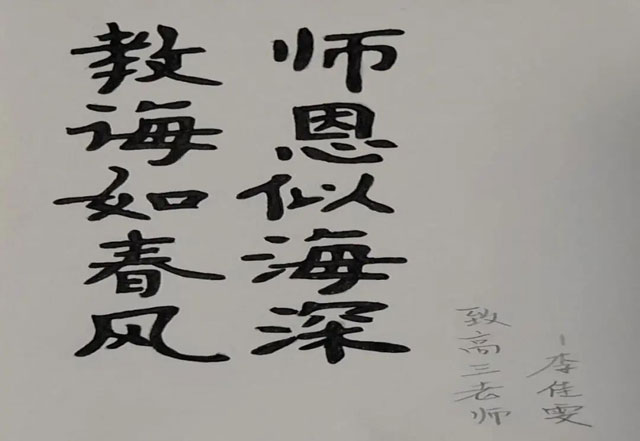 教诲如春风
师恩似海深
致高三老师
-李佳雯